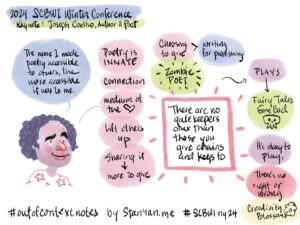 2024 SCBWI Winter Conference
Keynote: Joseph Coelho, Author & Poet
The more I made
poetry accessible
to others, the
more accessible
it was to me.
Poetry is
INNATE
Connection
medium of the
Lift others
up
Sharing is
more to give
Choosing
to give
Zombie
POET
writing
for
There are no
gatekeepers
other than
those you
give chains
and keys to
PLAYS
Fairy Tales
Gone Bad
It's okay to
Play!
There's no
right or
wrong
Creativity
Blossoms
#outofcontextnotes by StanYan.me #SCBWIny24